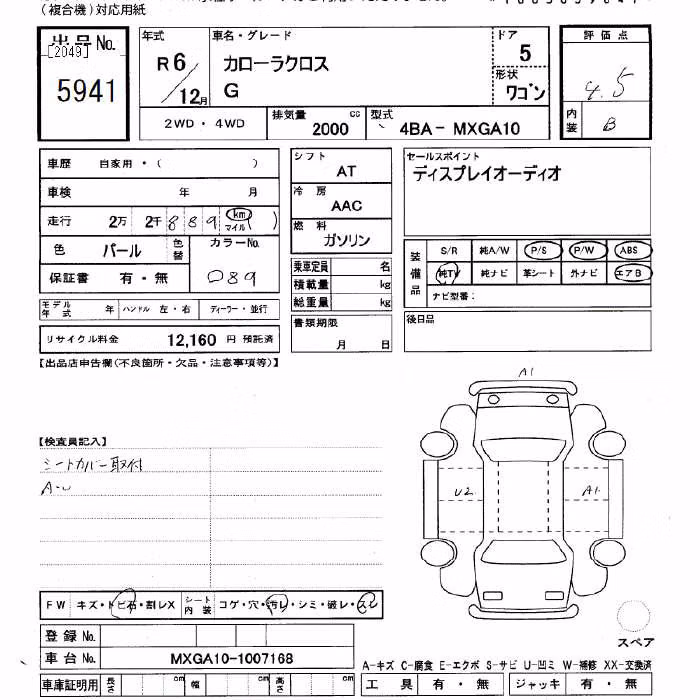 (複合機)対応用紙
出品No.
[2049]
5941
年式
R6/12月
車名・グレード
カローラクロス
G
ドア
5
形状
ワゴン
2WD・4WD
排気量
2000
cc
型式
4BA-MXGA10
評価点
4.5
内装
B
車歴 自家用・( )
車検 年 月
走行 2万 2千 8 8 9 km マイル ( )
色 パール 色替 カラーNo.
089
保証書 有・無
モデル年式 年 ハンドル 左・右 ディーラー・並行
リサイクル料金 12,160 円 預託済
シフト
AT
冷房
AAC
燃料
ガソリン
乗車定員 名
積載量 kg
総重量 kg
書類期限
月 日
セールスポイント
ディスプレイオーディオ
装備品
S/R 純A/W P/S P/W ABS
純TV 純ナビ 革シート 外ナビ エアB
ナビ型番:
後日品
【出品店申告欄(不良箇所・欠品・注意事項等)】
【検査員記入】
シートカバー取付
A-U
A1
U2
A1
スペア
FW キズ・トビ石・割レX シート内装 コゲ・穴・汚レ・シミ・破レ・スレ
登録No.
車台No. MXGA10-1007168
車庫証明用 長さ cm 幅 cm 高さ cm
A-キズ C-腐食 E-エクボ S-サビ U-凹ミ W-補修 XX-交換済
工具 有・無 ジャッキ 有・無